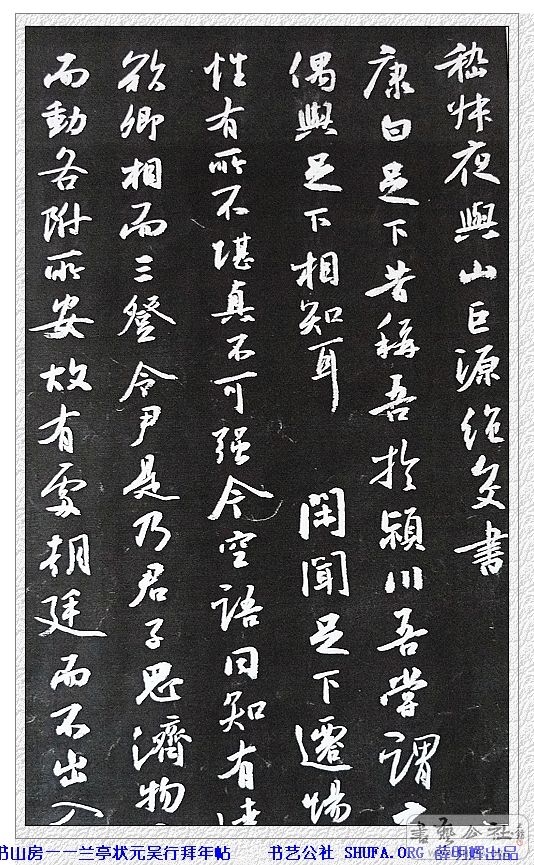 嵇叔夜與山巨源绝交書
康白足下昔稱吾於潁川吾嘗謂之
偶與足下相知耳 閑聞足下遷惕
性有所不堪真不可强今空語同知有達
欲卿相而三登令尹是乃君子思濟物
而動各附所安故有處朝廷而不出入
書藝公社
书山房一一兰亭状元吴行拜年帖 书艺公社 SHUFA.ORG 薛明辉出品